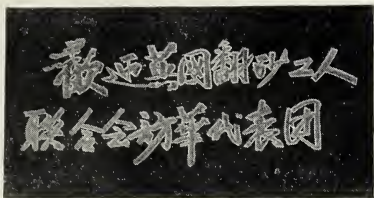 歡迎英国翻砂工人
联合会訪華代表团